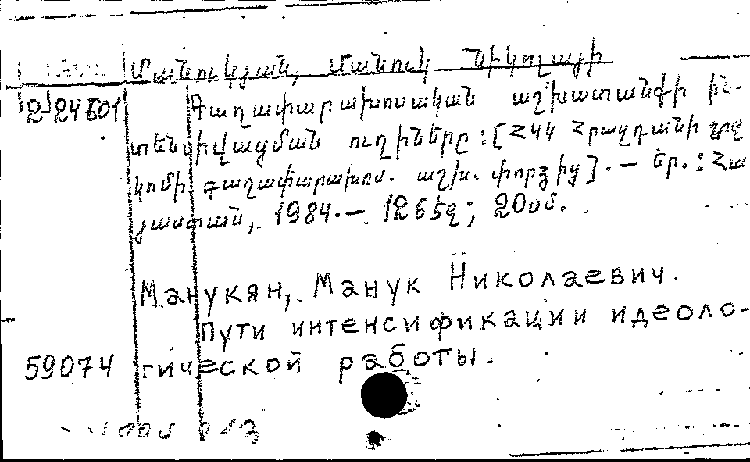 Մանուկյան, Մանուկ Նիկոլայի
Գաղափարախոսական աշխատանքի ին-
տենսիվացման ուղիները: [ՀԿԿ Հրազդանի շրջ
կոմի գաղափարախոս. աշխ. փորձից]. — Եր.: Հա
յաստան, 1984. — 126 էջ; 20 սմ.
Манукян, Манук Николаевич.
Пути интенсификации идеоло-
59074 гической работы.